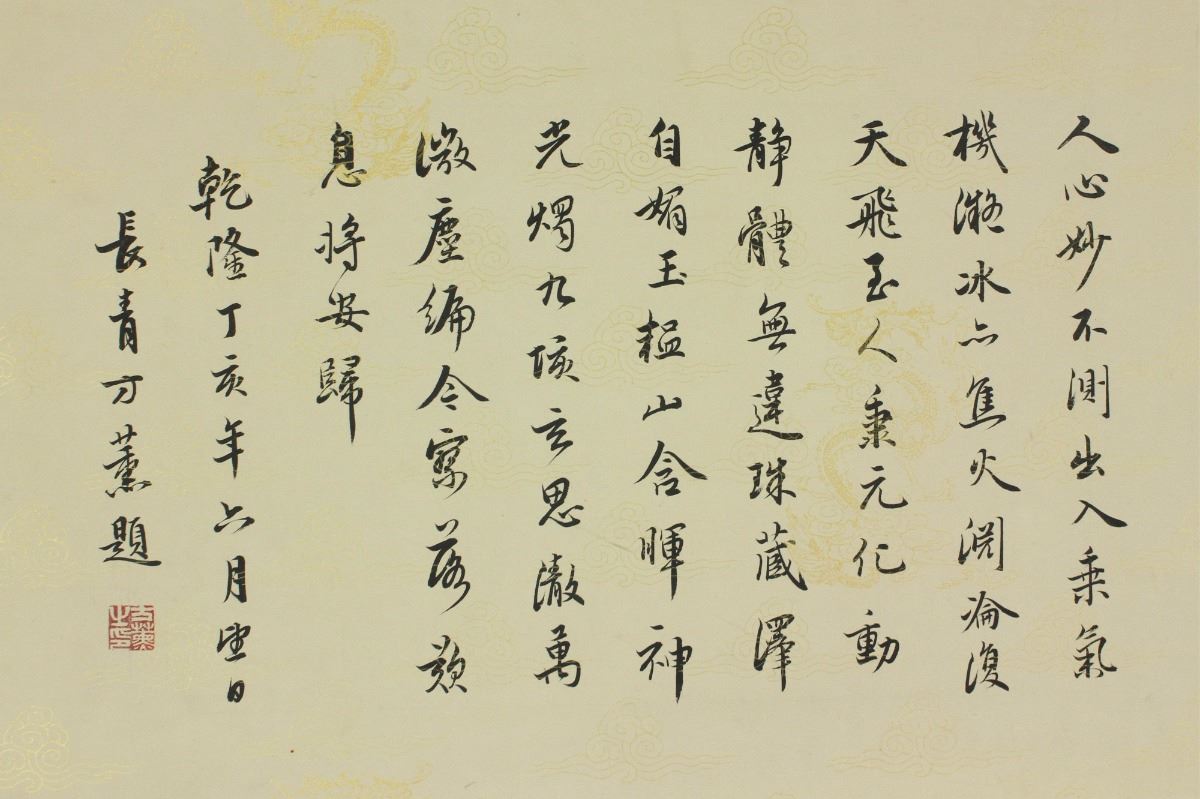 人心妙不測出入乘氣
機凝冰亦焦火淵淪復
天飛至人秉元化動
靜體無違珠藏澤
自媚玉韞山含暉神
光燭九垓玄思澈萬
微塵編今寥落歎
息將安歸
乾隆丁亥年六月望日
長青方薰題